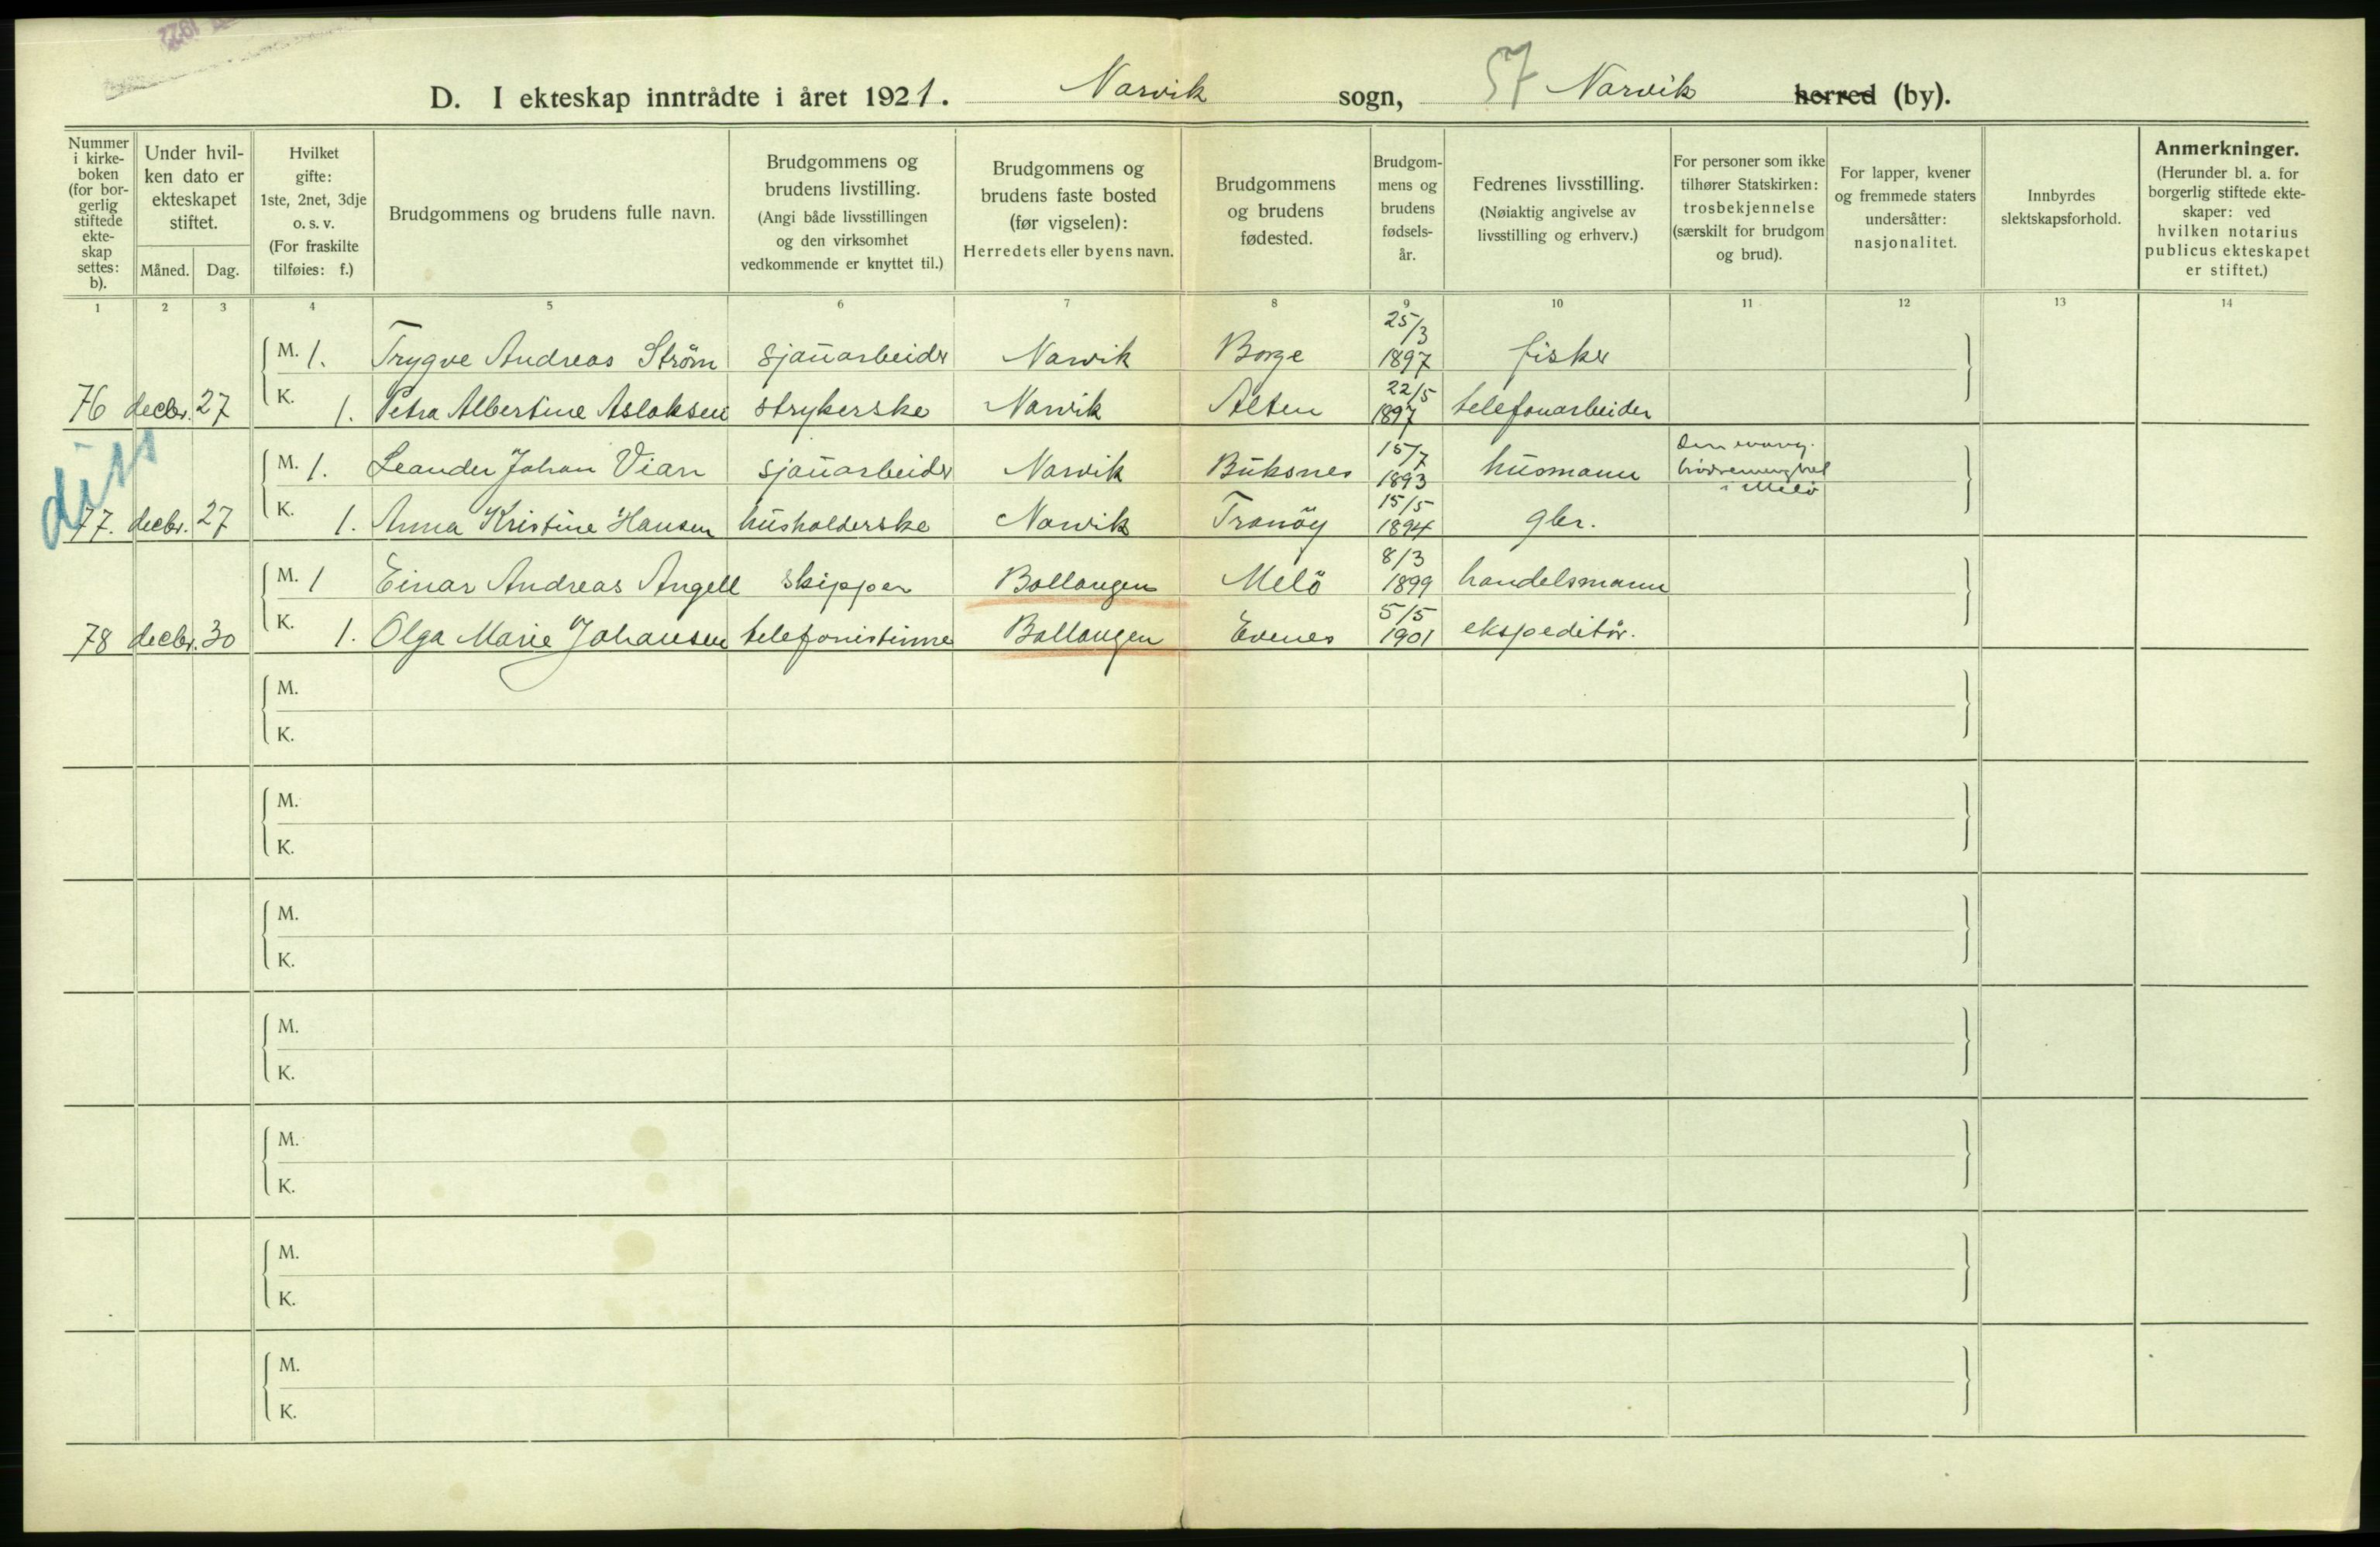 1922
D. I ekteskap inntrådte i året 1921. Narvik sogn, 57 Narvik herred (by).
Nummer i kirke- boken (for bor- gerlig stiftede ekte- skap settes: b).
Under hvil- ken dato er ekteskapet stiftet.
Måned. Dag.
Hvilket gifte: 1ste, 2net, 3dje o. s. v. (For fraskilte tilføies: f.)
Brudgommens og brudens fulle navn.
Brudgommens og brudens livstilling. (Angi både livsstillingen og den virksomhet vedkommende er knyttet til.)
Brudgommens og brudens faste bosted (før vigselen): Herredets eller byens navn.
Brudgommens og brudens fødested.
Brudgom- mens og brudens fødsels- år.
Fedrenes livsstilling. (Nøiaktig angivelse av livsstilling og erhverv.)
For personer som ikke tilhører Statskirken: trosbekjennelse (særskilt for brudgom og brud).
For lapper, kvener og fremmede staters undersåtter: nasjonalitet.
Innbyrdes slektskapsforhold.
Anmerkninger. (Herunder bl. a. for borgerlig stiftede ekte- skaper: ved hvilken notarius publicus ekteskapet er stiftet.)
1 2 3 4 5 6 7 8 9 10 11 12 13 14
M. 1. Trygve Andreas Ström sjauarbeider Narvik Borge 25/3 1897 fisker
76 decbr. 27 K. 1. Petra Albertine Aslaksen strykerske Narvik Alten 22/5 1897 telefonarbeider
diss
M. 1. Leander Johan Vian sjauarbeider Narvik Buksnes 15/7 1893 husmann Den evang. i Melö
77. decbr. 27 K. 1. Anna Kristine Hansen husholderske Narvik Tranöy 15/5 1894 gbr.
M. 1 Einar Andreas Angell skipper Ballangen Melö 8/3 1899 handelsmann
78 decbr. 30 K. 1. Olga Marie Johansen telefonistinne Ballangen Evenes 5/5 1901 ekspeditör.
M.
K.
M.
K.
M.
K.
M.
K.
M.
K.
M.
K.
M.
K.